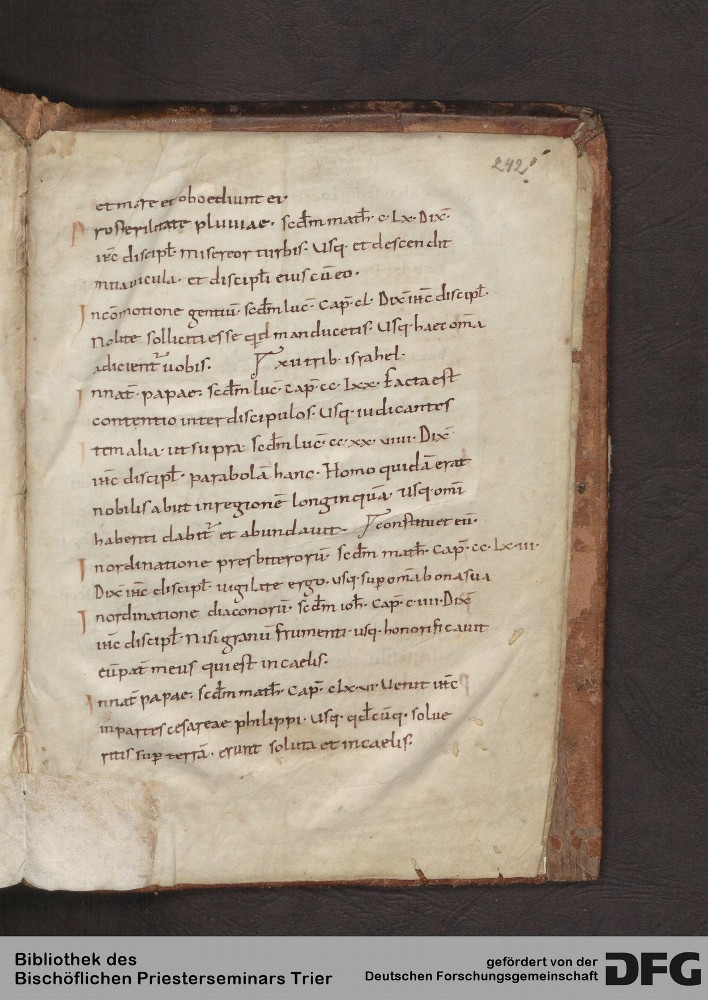 242
et mare et oboediunt ei·
Pro sterilitate pluviae· scdm math̄· c·Lx· Dix̄·
ih̄c discipl̄· misereor turbis· Usq· et descendit
in navicula· et discipl̄i eius cū eo·
In cōmotione gentiū· scdm luc̄· Cap̄· cl· Dix̄ ih̄c discipl̄·
Nolite solliciti esse qd manducetis· Usq· haec om̄a
adicient᷒ uobis· xii trib· israhel·
In nat̄· papae· scdm luc̄· Cap̄· cc·lxx· Facta est
contentio inter discipulos· Usq· iudicantes
Item alia· ut supra· scdm luc̄· cc·xx·viiii· Dix̄
ih̄c discipl̄· parabolā hanc· Homo quidā erat
nobilis abiit in regionē longinquā· usq· om̄i
habenti dabit᷒ et abundavit· constituet eū·
In ordinatione presbiterorū· scdm math̄· Cap̄· cc·Lx·iii·
Dix̄ ih̄c discipl̄· vigilate ergo· usq· sup om̄a bona sua
In ordinatione diaconorū· scdm ioh̄· Cap̄· c·iiii· Dix̄
ih̄c discipl̄· Nisi granū frumenti· usq· honorificavit
eū pat̄ meus qui est in caelis·
In nat̄ papae· scdm math̄· Cap̄· clx·vi· Venit ih̄c
in partes cesareae philippi· Usq· qdcūq· solue
ritis sup terrā· erunt soluta et in caelis·
Bibliothek des
Bischöflichen Priesterseminars Trier
gefördert von der
Deutschen Forschungsgemeinschaft
DFG